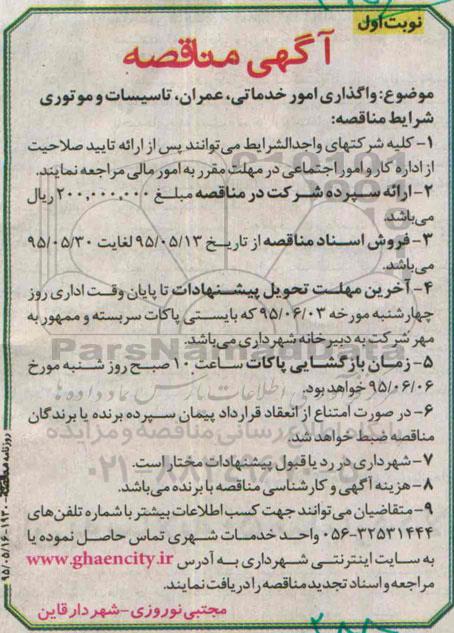 نوبت اول
آگهی مناقصه
موضوع: واگذاری امور خدماتی، عمران، تاسیسات و موتوری
شرایط مناقصه:
۱- کلیه شرکتهای واجدالشرایط می‌توانند پس از ارائه تایید صلاحیت
از اداره کار و امور اجتماعی در مهلت مقرر به امور مالی مراجعه نمایند.
۲- ارائه سپرده شرکت در مناقصه مبلغ ۲۰۰,۰۰۰,۰۰۰ ریال
می‌باشد.
۳- فروش اسناد مناقصه از تاریخ ۹۵/۰۵/۱۳ لغایت ۹۵/۰۵/۳۰
می‌باشد.
۴- آخرین مهلت تحویل پیشنهادات تا پایان وقت اداری روز
چهارشنبه مورخه ۹۵/۰۶/۰۳ که بایستی پاکات سربسته و ممهور به
مهر شرکت به دبیرخانه شهرداری می‌باشد.
۵- زمان بازگشایی پاکات ساعت ۱۰ صبح روز شنبه مورخ
۹۵/۰۶/۰۶ خواهد بود.
۶- در صورت امتناع از انعقاد قرارداد پیمان سپرده برنده یا برندگان
مناقصه ضبط خواهد شد.
۷- شهرداری در رد یا قبول پیشنهادات مختار است.
۸- هزینه آگهی و کارشناسی مناقصه با برنده می‌باشد.
۹- متقاضیان می‌توانند جهت کسب اطلاعات بیشتر با شماره تلفن‌های
۰۵۶-۳۲۵۳۱۴۴۴ واحد خدمات شهری تماس حاصل نموده یا
به سایت اینترنتی شهرداری به آدرس www.ghaencity.ir
مراجعه و اسناد تجدید مناقصه را دریافت نمایند.
مجتبی نوروزی - شهردار قاین
روزنامه مناقصه ۱۹۳۰-۹۵/۰۵/۱۶
ParsNamadData